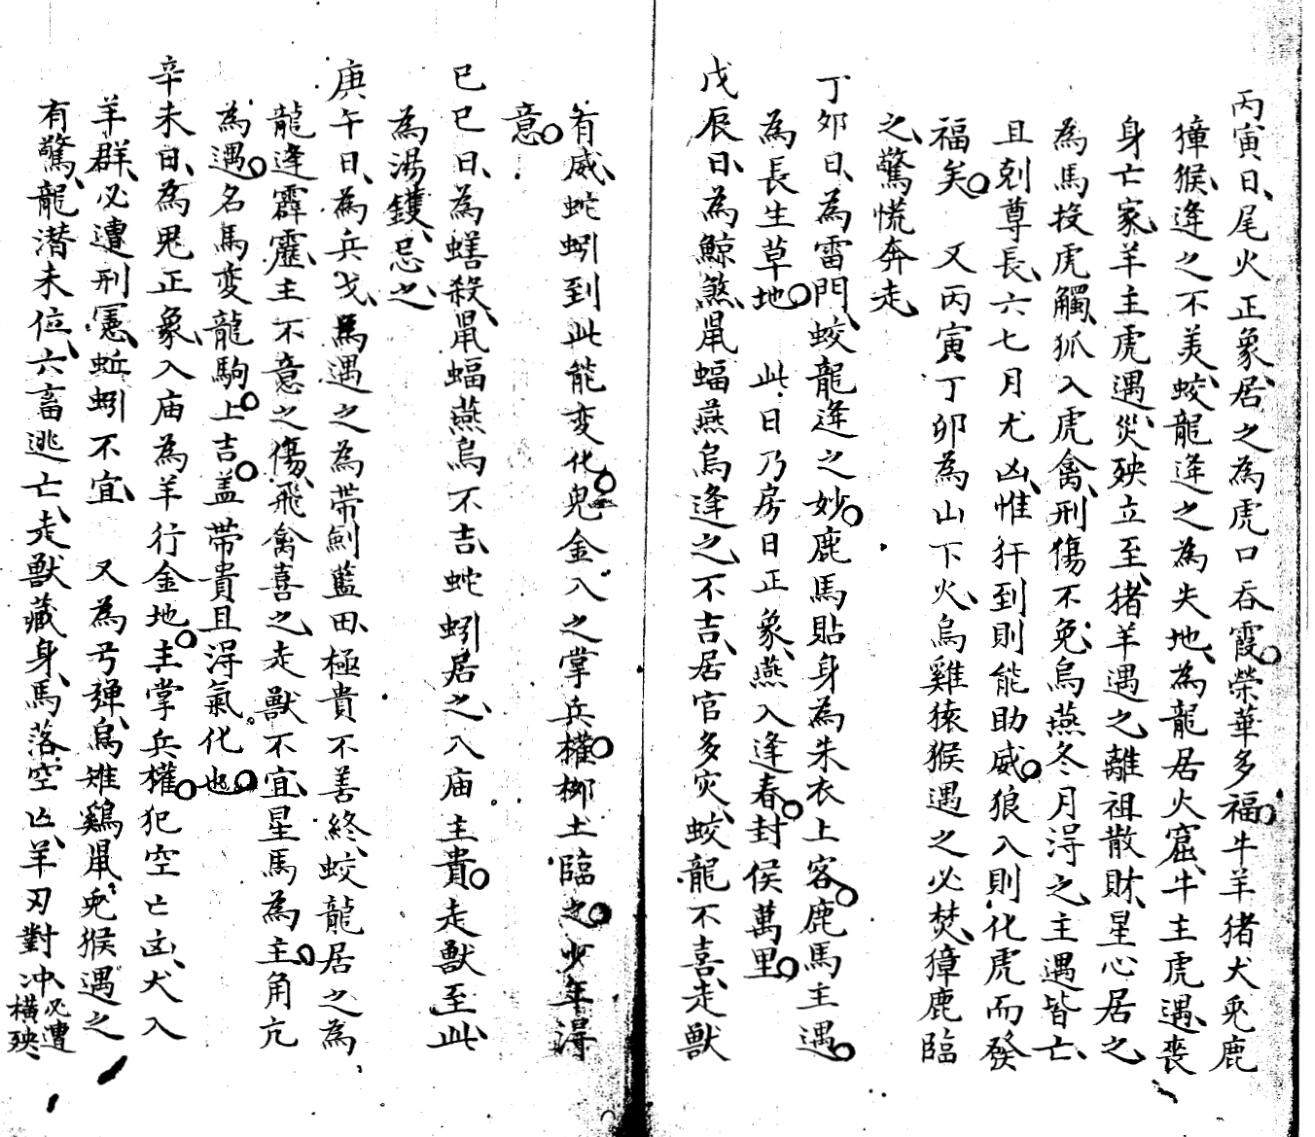 丙寅日、尾火正象、居之為虎口吞霞。榮華多福。牛羊猪犬兎鹿
獐猴、逢之不美、蛟龍逢之為失地、為龍居火窟、牛主虎遇、喪
身亡家、羊主虎遇、災殃立至、猪羊遇之離祖散財、星心居之、
為馬投虎觸、狐入虎禽、刑傷不免、烏燕冬月淂之、主遇皆亡、
且剋尊長、六七月尤凶、惟犴到則能助威。狼入則化虎而發
福矣。 又丙寅丁卯為山下火、烏雞猿猴遇之必焚、獐鹿臨
之、驚慌奔走、
丁夘日、為雷門、蛟龍逢之妙。鹿馬貼身為朱衣上客。鹿馬主遇。
為長生草地。 此日乃房日正象、燕入逢春。封侯萬里。
戊辰日、為鯨煞、鼠蝠燕烏逢之、不吉、居官多灾、蛟龍不喜、走獸
有威、蛇蚓到此能変化。鬼金入之掌兵權。柳土臨之。少年淂
意。
己巳日、為蟮殺、鼠蝠燕烏不吉、蛇蚓居之、入庙主貴。走獸至此、
為湯鑊、忌之、
庚午日、為兵戈、馬遇之為帶劍藍田、極貴不善終、蛟龍居之為
龍逢霹靂、主不意之傷、飛禽喜之、走獸不宜、星馬為主。角亢
為遇。名馬変龍駒。上吉。盖帶貴且淂氣化也。
辛未日、為鬼正象、入庙為羊行金地。主掌兵權。犯空亡凶、犬入
羊群、必遭刑憲、蚯蚓不宜、 又為弓弾、烏雉鷄鼠兎猴遇之
有驚、龍潜未位、六畜逃亡、走獸藏身、馬落空凶、羊刃對冲必遭
橫殃、